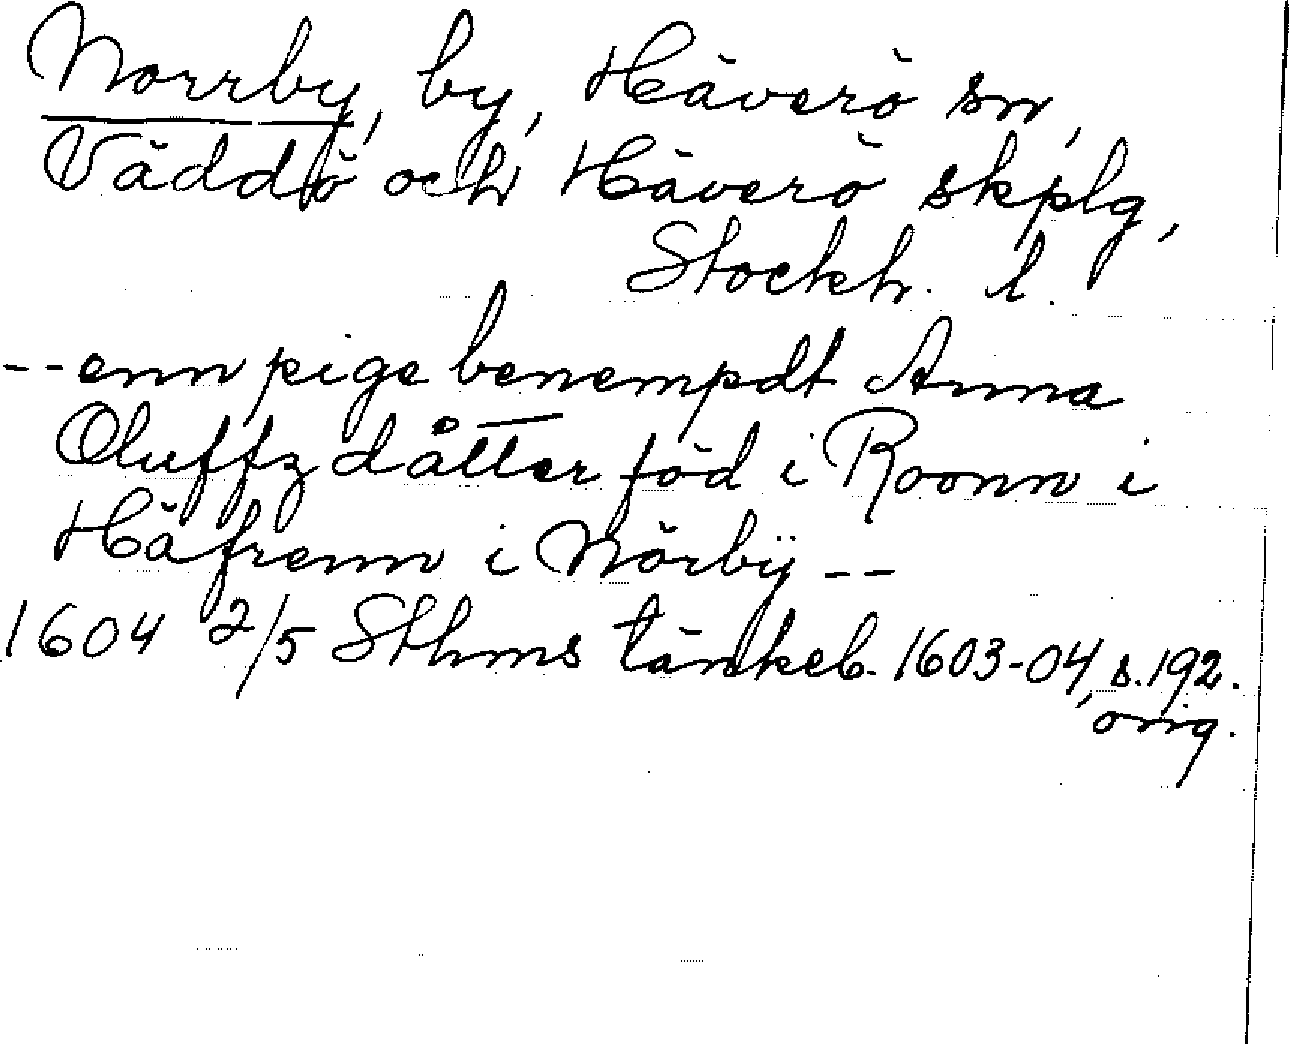 Norrby, by, Häverö sn,
Väddö och Häverö skplg,
Stockh. l.
-- enn pige benempdt Anna
Oluffz dåtter föd i Roonn i
Häfrenn i Nörbÿ --
1604 2/5 Sthms tänkeb. 1603-04, s. 192.
orig.